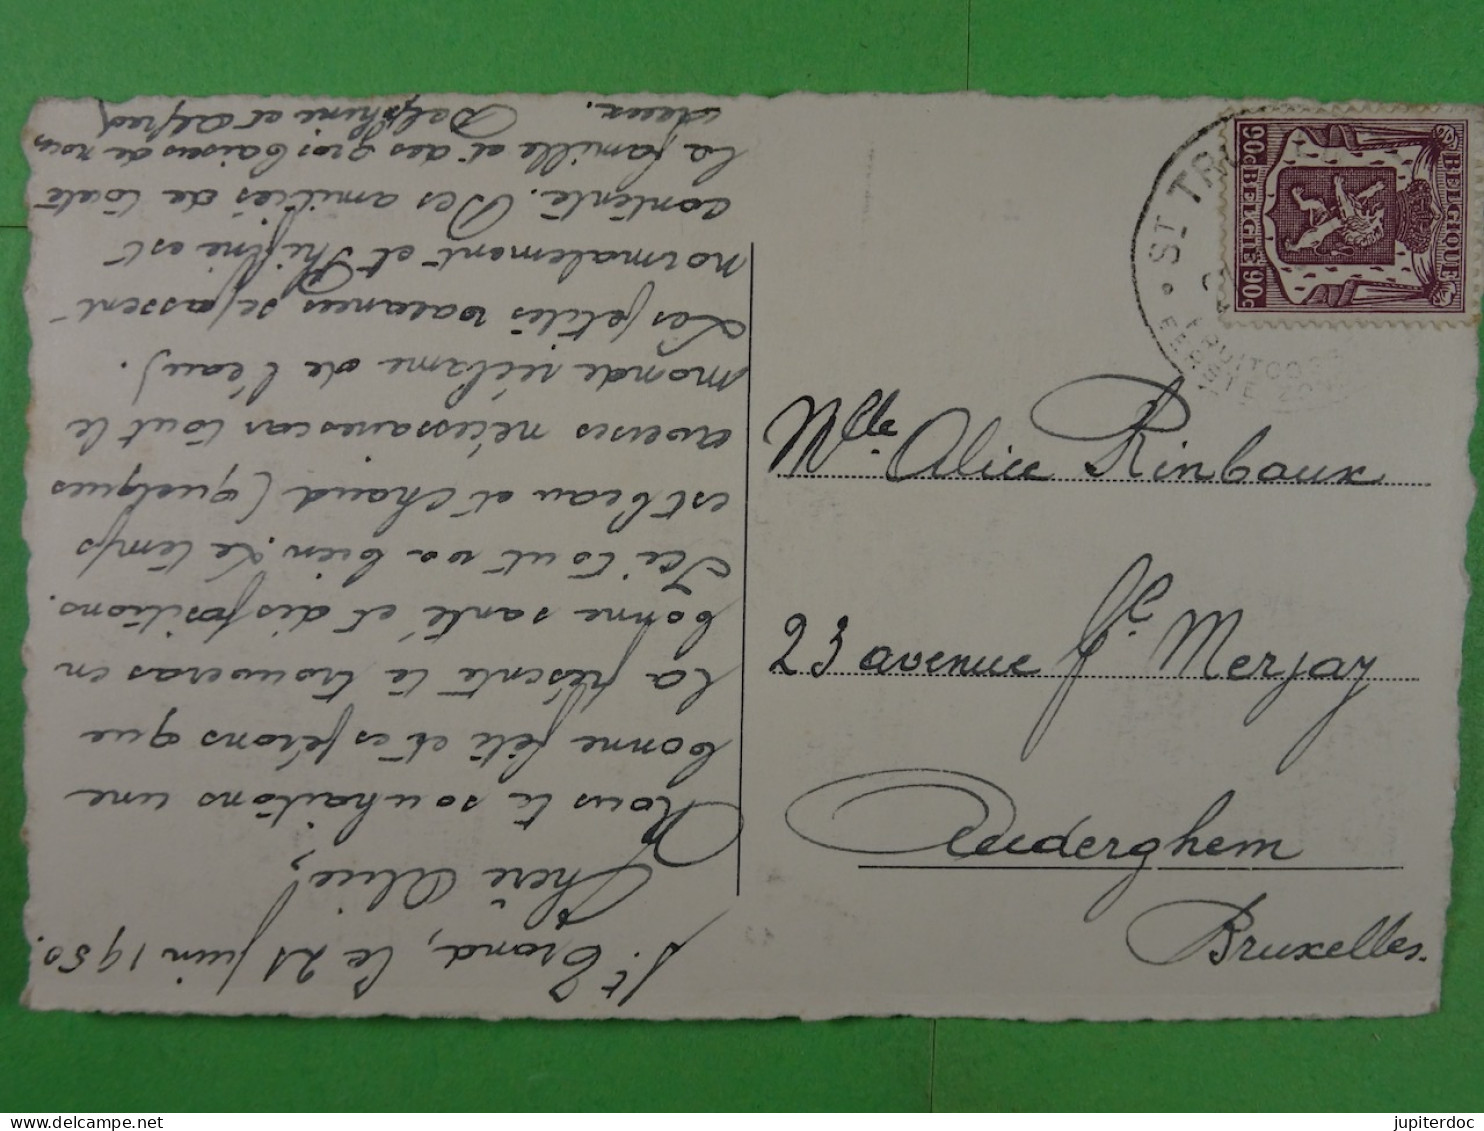 St Trond, le 21 juin 1950.
Chère Alice,
Nous te souhaitons une
bonne fête et espérons que
la présente te trouveras en
bonne santé et dispositions.
Ici tout va bien. Le temps
est beau et chaud (quelques
averses nécessaires car tout le
monde réclame de l'eau).
Les petites vacances se passent
normalement et Phifine est
contente. Des amitiés de toute
la famille et des gros baisers de nous
deux. Delphine et Alfred
BELGIQUE
90c BELGIE 90c
ST TRU
FRUIT
EERSTE
Mlle Alice Rinboux
23 avenue Gl. Merjay
Auderghem
Bruxelles.
delcampe.net
jupiterdoc